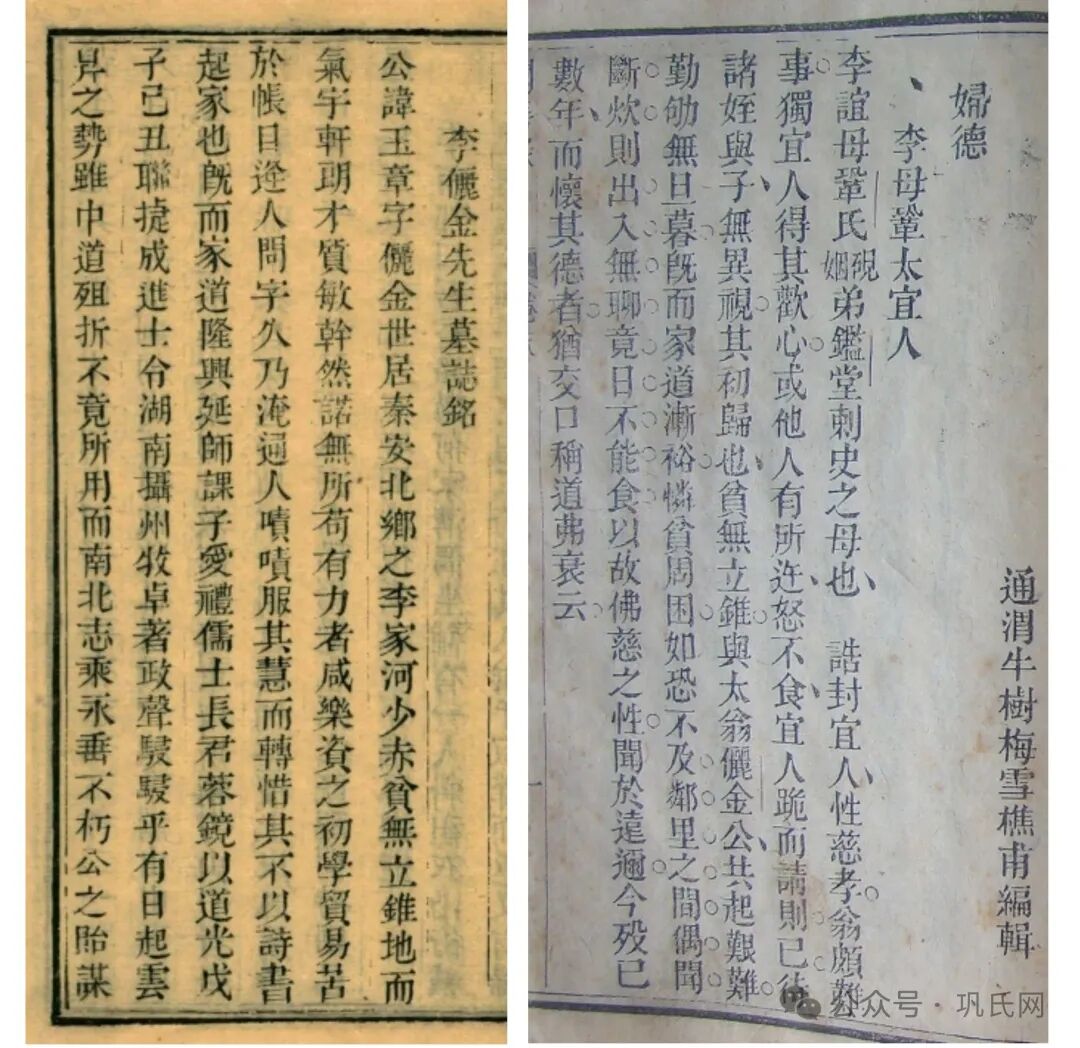 李儷金先生墓誌銘
公諱玉章字儷金世居秦安北鄉之李家河少赤貧無立錐地而
氣宇軒明才質敏幹然諾無所苟有力者咸樂資之初學貿易苦
於帳目逢人問字久乃淹通人嘖嘖服其慧而轉惜其不以詩書
起家也旣而家道隆興延師課子愛禮儒士長君蓉鏡以道光戊
子己丑聯捷成進士令湖南攝州牧卓著政聲駸駸乎有日起雲
昇之勢雖中道殂折不竟所用而南北志乘永垂不朽公之貽謀
通渭牛樹梅雪樵甫編輯
婦德
李母鞏太宜人
李誼母鞏氏硯姻弟鑑堂刺史之母也 誥封宜人性慈孝翁頗難
事獨宜人得其歡心或他人有所迕怒不食宜人跪而請則已待
諸姪與子無異視其初歸也貧無立錐與太翁儷金公共起艱難
勤劬無旦暮旣而家道漸裕憐貧周困如恐不及鄰里之間偶聞
斷炊則出入無聊竟日不能食以故佛慈之性聞於遠邇今歿已
數年而懷其德者猶交口稱道弗衰云
公众号·巩氏网